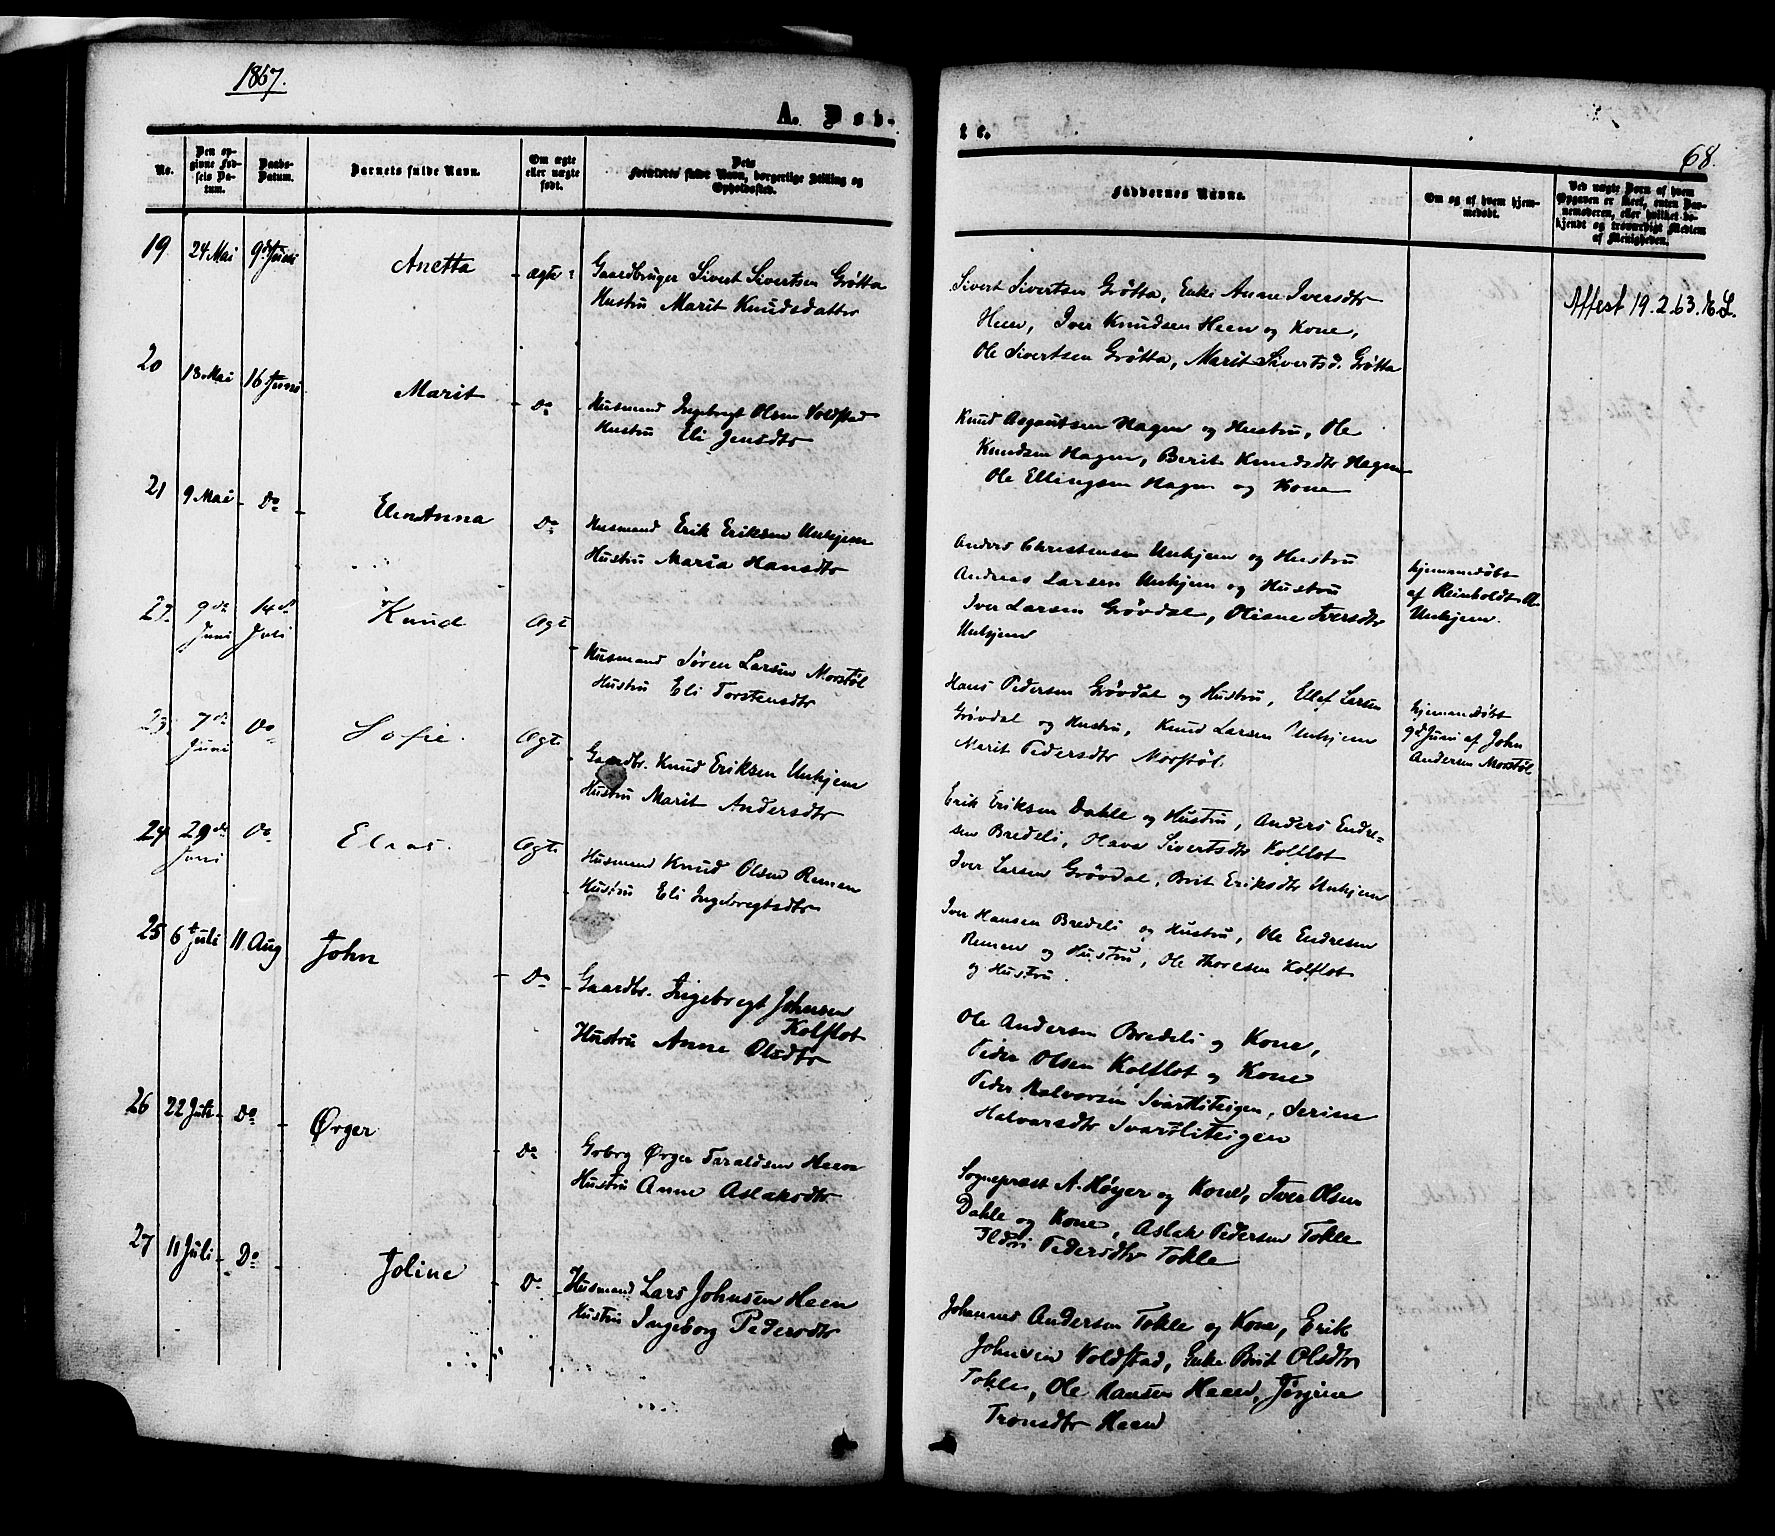 1867.
A. Døb-
te.
68.
No.
Den op-
givne Fød-
sels Da-
tum.
Daabs-
Datum.
Barnets fulde Navn.
Om ægte
eller uægte
født.
Dets
Forældres fulde Navn, borgerlige Stilling og
Opholdssted.
Faddernes Navne.
Om og af hvem hjem-
medøbt.
Ved uægte Børn af hvem
Opgaven er skeet, enten Bar-
nemoderen, eller hvilket be-
kjendt og troværdigt Medlem
af Menigheden.
19 24 Mai 9de Juni Anetta Ægte
Gaardbruger Sivert Sivertsen Grøtta
Hustru Marit Knudsdatter
Sivert Sivertsen Grøtta, Enke Anne Iversdtr
Heen, Iver Knudsen Heen og Kone,
Ole Sivertsen Grøtta, Marit Sivertsd. Grøtta
Attest 19.2.63.
20 13 Mai 16 Juni Marit Do
Husmand Ingebrigt Olsen Voldstad
Hustru Eli Jensdtr
Knud Asgautsen Hagen og Hustru, Ole
Knudsen Hagen, Berit Knudsdtr Hagen
Ole Ellingsen Hagen og Kone
21 9 Mai Do Elen Anna Do
Husmand Erik Eriksen Unhjem
Hustru Maria Hansdtr
Anders Christensen Unhjem og Hustru
Andreas Larsen Unhjem og Hustru
Iver Larsen Grøvdal, Olisne Iversdtr
Unhjem
hjemmedøbt
af Reinholdt A.
Unhjem.
22. 9de Juni 14de Juli Knud Ægte
Husmand Søren Larsen Morstøl
Hustru Eli Torstensdtr
Hans Pedersen Grøvdal og Hustru, Ellef Larsen
Grøvdal og Hustru, Knud Larsen Unhjem
Marit Pedersdtr Morstøl.
hjemmedøbt
9de Juni af John
Andersen Morstøl
23. 7de Juni Do Sofie. Ægte
Gaardbr. Knud Eriksen Unhjem
Hustru Marit Andersdtr
Erik Eriksen Dahle og Hustru, Anders Endre-
sen Bredeli, Olava Sivertsdtr Kolflot
Iver Larsen Grøvdal, Brit Eriksdtr Unhjem
24 29de Juni Do Elias. Ægte
Husmand Knud Olsen Remen
Hustru Eli Ingebregtsdtr
Iver Hansen Bredeli og Hustru, Ole Endresen
Remen og Hustru, Ole Thoresen Kolflot
og Hustru.
25 6te Juli 11 Aug John Do
Gaardbr. Ingebregt Johnsen
Kolflot
Hustru Anne Olsdtr
Ole Andersen Bredeli og Kone,
Peder Olsen Kolflot og Kone
Peder Halvorsen Svartliteigen, Serine
Halvarsdtr Svartliteigen
26 22 Juli Do Ørger Do
Grbrg Ørger Taraldsen Heen
Hustru Anne Aslaksdtr
Sognepræst A. Høyer og Kone, Iver Olsen
Dahle og Kone, Aslak Pedersen Tokle
Ildri Pedersdtr Tokle
27 11 Juli Do Joline Do
Husmand Lars Johnsen Heen
Hustru Ingeborg Pedersdtr
Johannes Andersen Tokle og Kone, Erik
Johnsen Voldstad, Enke Brit Olsdtr
Tokle, Ole Hansen Heen, Jørgine
Tronsdtr Heen